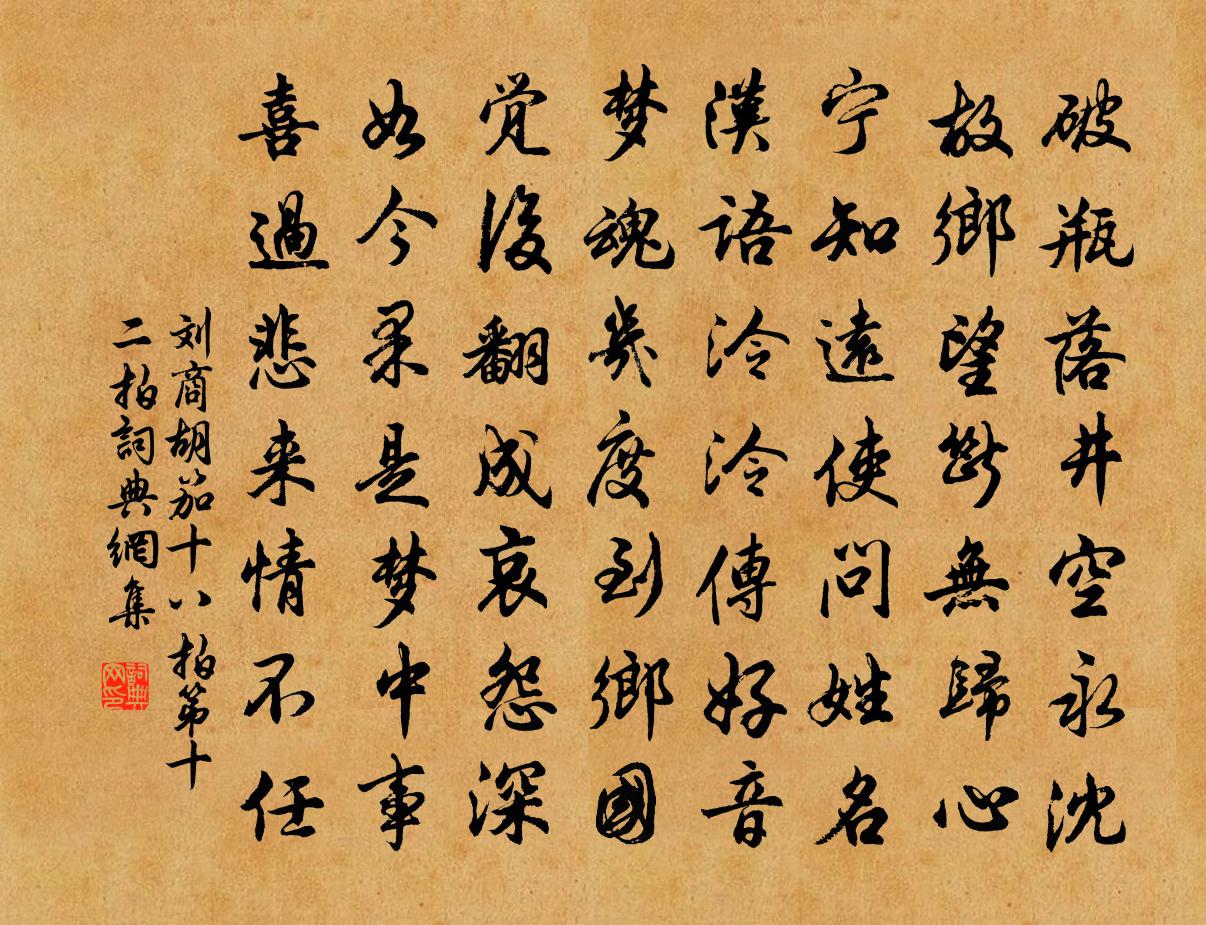 破瓶落井空永沈
故鄉望斷無歸心
宁知遠使問姓名
漢語泠泠傳好音
梦魂幾度到鄉國
觉後翻成哀怨深
如今果是梦中事
喜過悲来情不任
刘商胡笳十八拍第十
二拍詞典網集
詞典网印